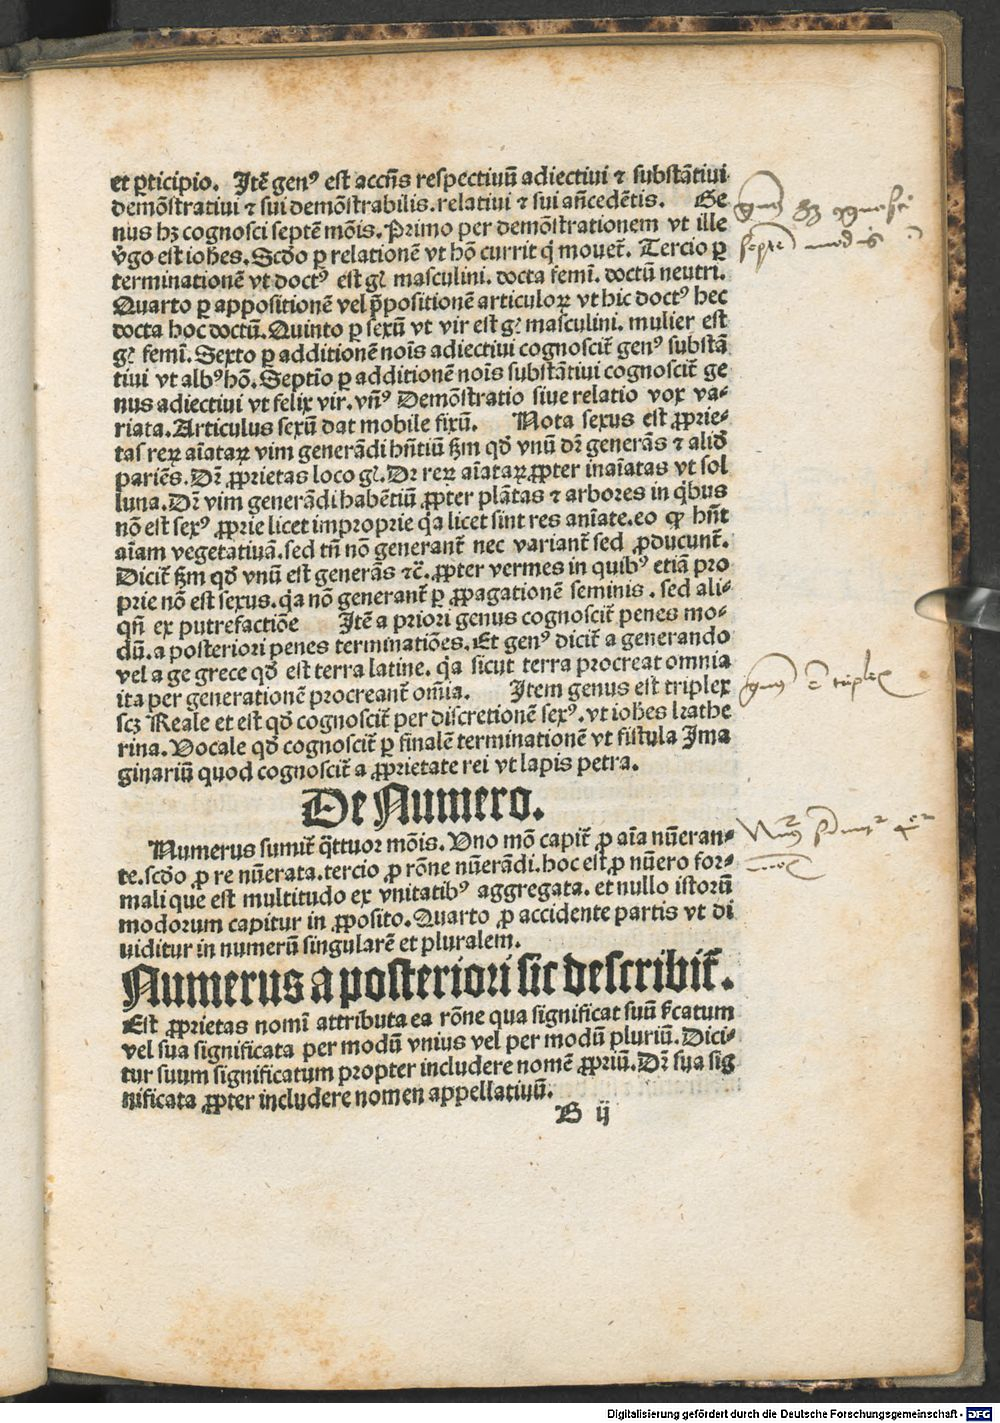 et ꝑticipio. Itē genꝰ est accn̄s respectiuū adiectiui ⁊ substātiui
demōstratiui ⁊ sui demōstrabilis. relatiui ⁊ sui an̄cedētis. Ge
nus hꝫ cognosci septē mōis. Primo per demōstrationem vt ille
v̄go est ioh̄es. Scd̄o ꝑ relationē vt hō currit q̄ mouet̄. Tercio ꝑ
terminationē vt doctꝰ est gr̄ masculini. docta femī. doctū neutri.
Quarto ꝑ appositionē vel p̄positionē articuloꝝ vt hic doctꝰ hec
docta hoc doctū. Quinto ꝑ sexū vt vir est gr̄ masculini. mulier est
gr̄ femī. Sexto ꝑ additionē nōis adiectiui cognoscit̄ genꝰ substā
tiui vt albꝰ hō. Septīo ꝑ additionē nōis substātiui cognoscit̄ ge
nus adiectiui vt felix vir. vn̄ꝰ Demōstratio siue relatio vox va⸗
riata. Articulus sexū dat mobile fixū. Nota sexus est ꝓprie⸗
tas reꝝ aīataꝝ vim generādi hn̄tiū ẜm qd̄ vnū dr̄ generās ⁊ alid̄
pariēs. Dr̄ ꝓprietas loco gr̄. Dr̄ reꝝ aīataꝝ ꝓpter inaīatas vt sol
luna. Dr̄ vim generādi habētiū ꝓpter plātas ⁊ arbores in q̄bus
nō est sexꝰ ꝓprie licet improprie q̄a licet sint res anīate. eo ꝙ hn̄t
aīam vegetatiuā. sed tn̄ nō generant̄ nec variant̄ sed ꝓducunt̄.
Dicit̄ ẜm qd̄ vnū est generās ⁊c̄. ꝓpter vermes in quibꝰ etiā pro
prie nō est sexus. q̄a nō generant̄ ꝑ ꝓpagationē seminis. sed ali⸗
qn̄ ex putrefactiōe Itē a priori genus cognoscit̄ penes mo⸗
dū. a posteriori penes terminatiōes. Et genꝰ dicit̄ a generando
vel a ge grece qd̄ est terra latine. q̄a sicut terra procreat omnia
ita per generationē procreant̄ om̄ia. Item genus est triplex
scꝫ Reale et est qd̄ cognoscit̄ per discretionē sexꝰ. vt ioh̄es kathe
rina. Vocale qd̄ cognoscit̄ ꝑ finalē terminationē vt fistula Ima
ginariū quod cognoscit̄ a ꝓprietate rei vt lapis petra.
De Numero.
Numerus sumit̄ q̄ttuor mōis. Vno mō capit̄ ꝓ aīa nūeran⸗
te. scd̄o ꝓ re nūerata. tercio ꝓ rōne nūerādi. hoc est ꝓ nūero for⸗
mali que est multitudo ex vnitatibꝰ aggregata. et nullo istorū
modorum capitur in ꝓposito. Quarto ꝓ accidente partis vt di
uiditur in numerū singularē et pluralem.
Numerus a posteriori sic describit̄.
Est ꝓprietas nomī attributa ea rōne qua significat suū s̄catum
vel sua significata per modū vnius vel per modū pluriū. Dici⸗
tur suum significatum propter includere nomē ꝓpriū. Dr̄ sua sig
nificata ꝓpter includere nomen appellatiuū.
B ij
Digitalisierung gefördert durch die Deutsche Forschungsgemeinschaft - DFG